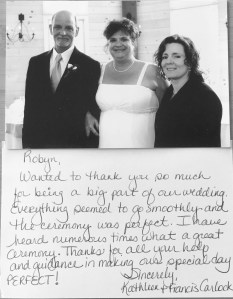 Robyn,
Wanted to thank you so much
for being a big part of our wedding.
Everything seemed to go smoothly and
the ceremony was perfect. I have
heard numerous times what a great
ceremony. Thanks for all you help
and guidance in making our special day
PERFECT!
Sincerely,
Kathleen & Francis Carlock